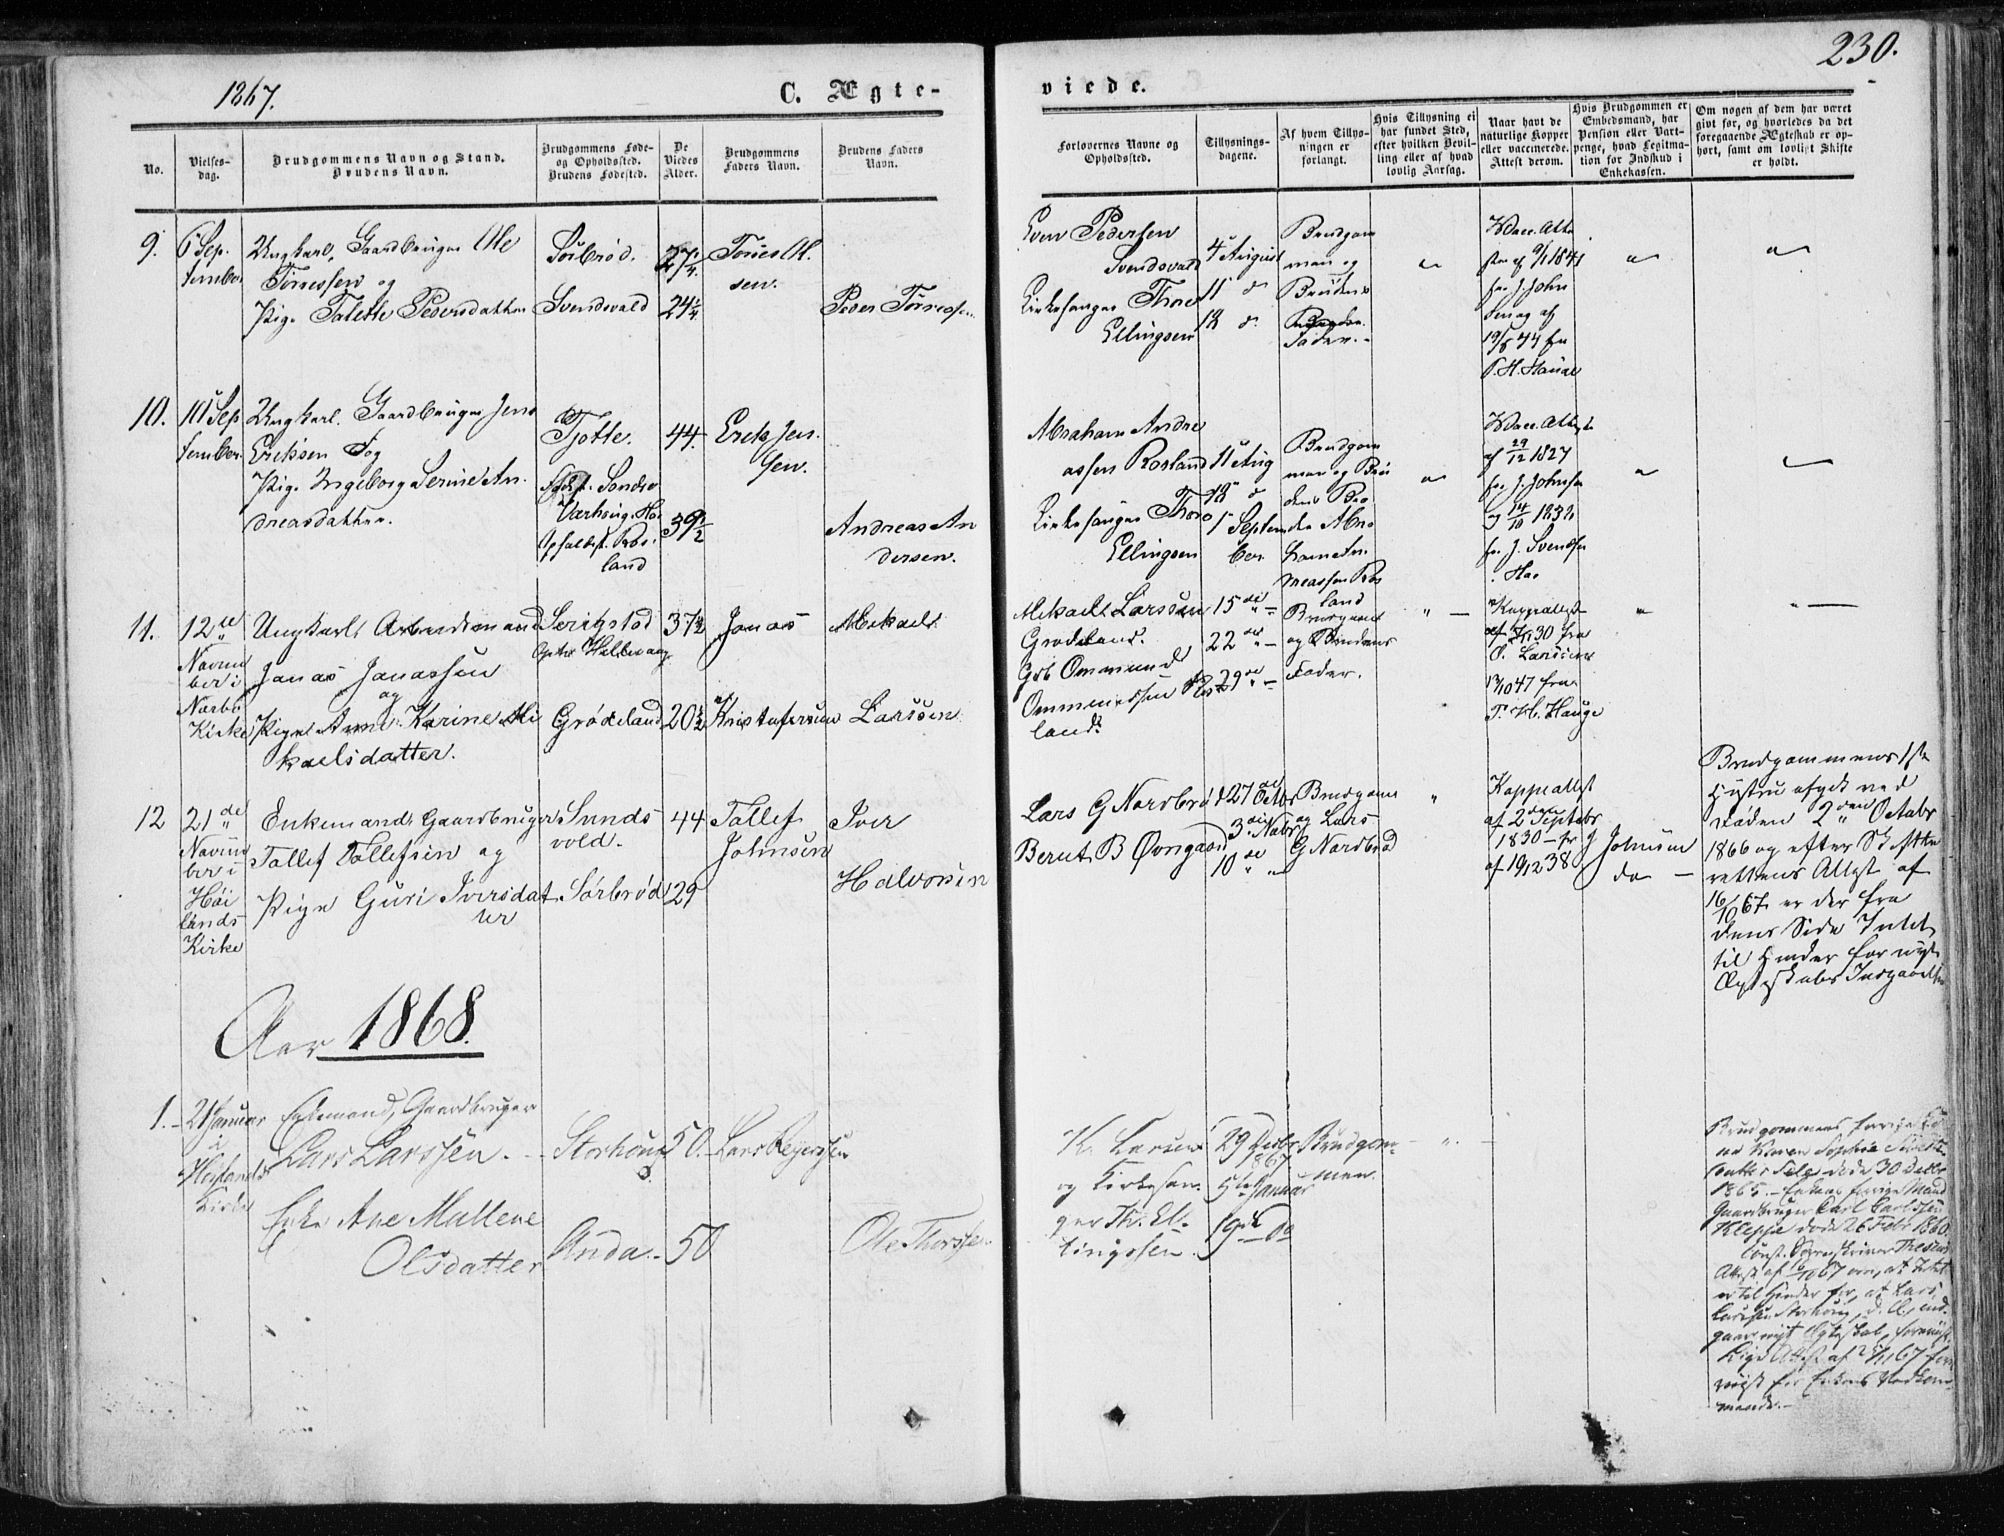 230.
1867.
C. Ægte-
viede.
No.
Vielses-
dag.
Brudgommens Navn og Stand.
Brudens Navn.
Brudgommens Føde-
og Opholdssted.
Brudens Fødested.
De
Viedes
Alder.
Brudgommens
Faders Navn.
Brudens Faders
Navn.
Forlovernes Navne og
Opholdssted.
Tillysnings-
dagene.
Af hvem Tillys-
ningen er
forlangt.
Hvis Tillysning ei
har fundet Sted,
efter hvilken Bevil-
ling eller af hvad
lovlig Aarsag.
Naar havt de
naturlige Kopper
eller vaccinerede.
Attest derom.
Hvis Brudgommen er
Embedsmand, har
Pension eller Vart-
penge, hvad Legitima-
tion for Indskud i
Enkekassen.
Om nogen af dem har været
givt før, og hvorledes da det
foregaaende Ægteskab er op-
hørt, samt om lovligt Skifte
er holdt.
9.
6 Sep.
tember
Ungkarl, Gaardbruger Ole
Tørressen og
Pige Talette Pedersdatter
Sørbrød.
Svendsvald
27 1/4.
24 1/4
Tørres Ol.
sen.
Peder Tørresen
Even Pedersen
Svendsvald
Kirkesanger Thore
Ellingsen
4 August
11 d
18 d.
Brudgom
men og
Brudens
Fader.
Vacc. Atte
ster af 9/1 1841
fra J. John
sen og af
19/8 44 fra
P. H. Hauge
10.
10 Sep
tember
Ungkarl. Gaardbruger Jens
Eriksen og
Pige Ingeborg Serine An.
dreasdatter.
Tjøtte.
Fødest. Søndre
Varhoug. Haa
Opholdst. Ros.
land
44.
39 1/2
Erik Jen.
sen.
Andreas An
dersen.
Abraham Andre
assen Rosland
Kirkesanger Thore
Ellingsen
11 Aug
18 d
1 Septem
ber
Brudgom
men og Bru
dens Bro
der Abra
ham An.
dreassen Ros
land
Vacc. Attest
af 29/12 1827
fra J. Johnsen
og 14/10 1832
fra J. Svendsen
Haa
11.
12te
Novem
ber i
Nærbø
Kirke
Ungkarl Arbeidsmand
Jonas Jonassen
og
Pige Anne Karine Mi
kaelsdatter.
Serigstad
Opho Hellevang
Grødeland
37 1/2
20 1/2
Jonas
Kristofersen
Mikael
Larssen
Mikael Larssen
Grødeland.
Gb Ommund
Ommundsen Ros
land
15de
22de
29de
Brudgom
og Brudens
Fader.
Koppeattest
30 fra
O. Larsen
13/10 47 fra
P. H. Hauge
12
21de
Novem
ber i
Høi
lands
Kirke
Enkemand Gaardbruger
Tollef Tollefsen og
Pige Guri Iversdat
ter
Sunds
vold.
Sørbrød
44
29
Tollef
Johnsen
Iver
Halvorsen
Lars G Nordbrød
Bernt B Øvrgaard
27 Octbr
3die Nobr
10de
Brudgom
og Lars
G Nordbrød
Koppeattest
af 2 Septebr
1830 fr J Johnsen
af 19/12 38 do
Brudgommens 1ste
Hustru afgik ved
Døden 2den Octobr
1866 og efter Skifte
rettens Attest af
16/10 67 er der fra
dens Side Intet
til Hinder for nyt
Ægteskabs Indgaaelse
Aar 1868.
1.
21 Januar
i
Høilands
Kirke
Enkemand, Gaardbruger
Lars Larssen.
Enke Ane Mallene
Olsdatter
Storhoug
Anda.
50.
50
Lars Regerssen
Ole Thorssen
K. Larsen
og Kirkesan.
ger Th. El.
lingssen.
29 Decbr
1867
5te Januar
19de do
Brudgom
men.
Brudgommens forrige Ko
ne Karen Sophie
datter døde 30 Decbr
1865. Enkens forrige Mand
Gaardbruger Carl Carlssen
Kleppe døde 26 Febr 1860.
Const. Sorenskriver
Attest af 67 om, at Intet
er til Hinder for, at Lars
Larssen Storhoug ind-
gaar nyt Ægteskab,
lige Attest af 67
for Enkens Vedkom
mende.